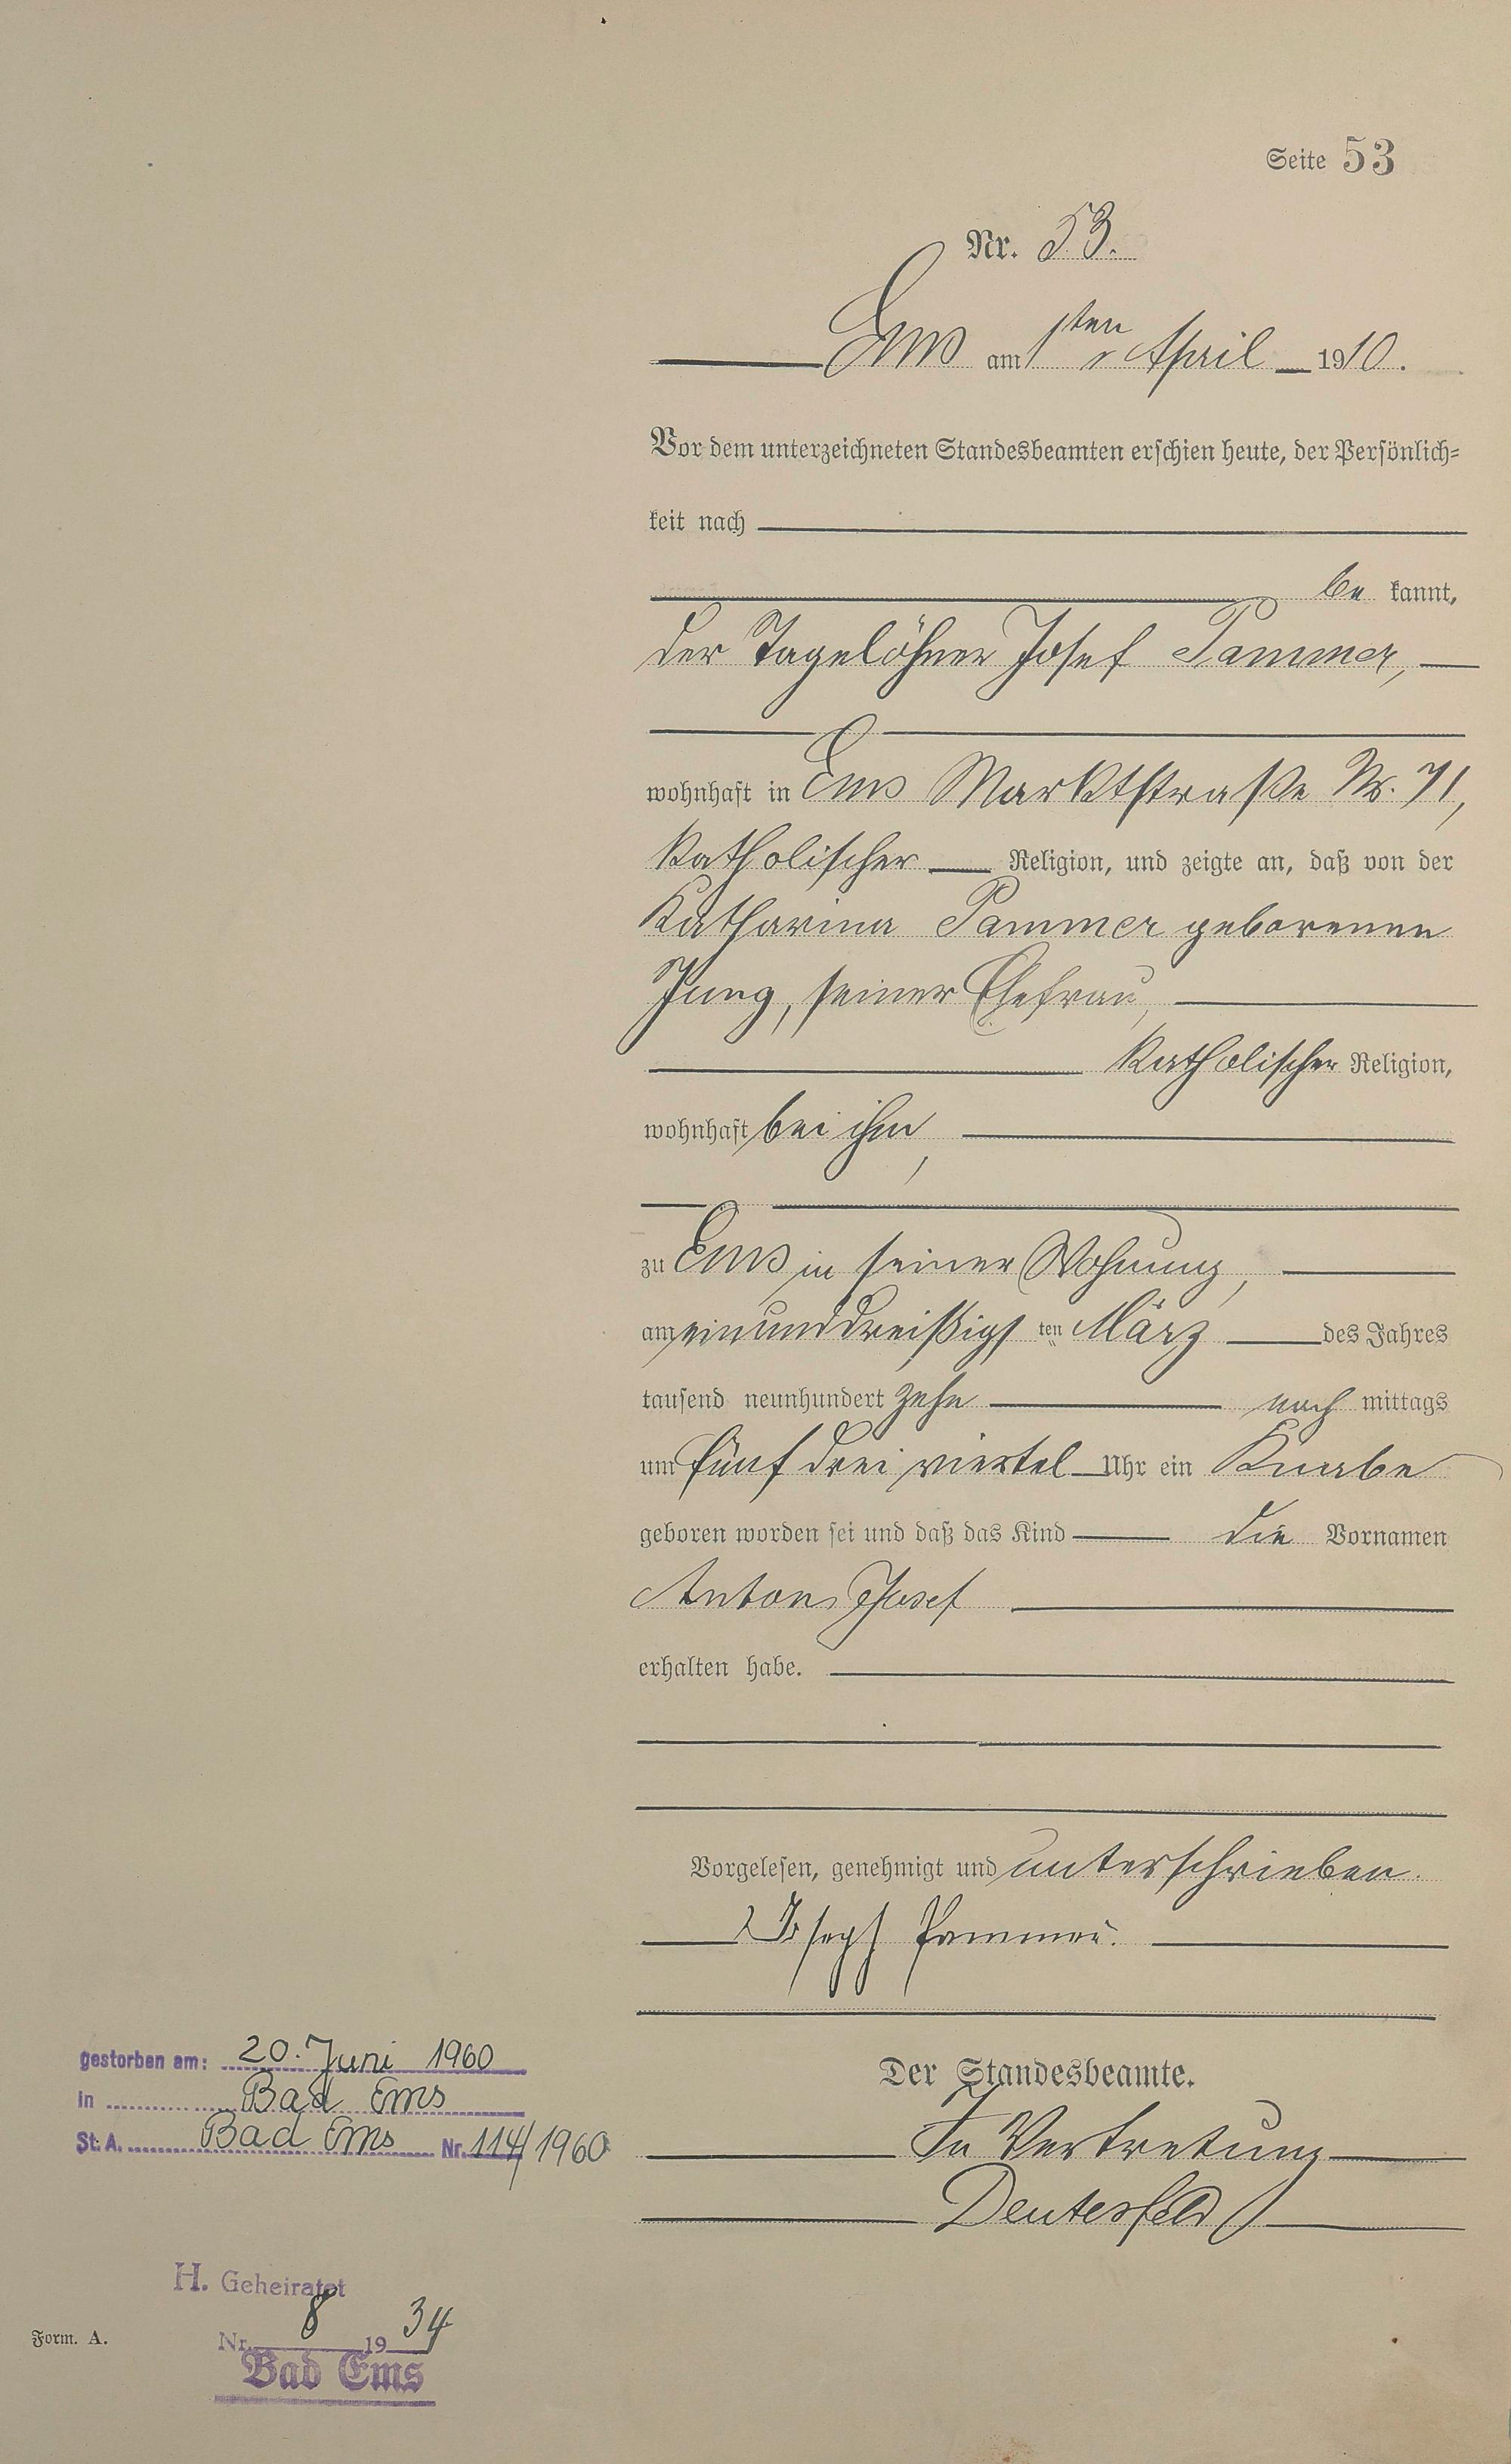 Seite 53
Nr. 53.
Ems am 1ten April 1910.
Vor dem unterzeichneten Standesbeamten erschien heute, der Persönlich=
keit nach
be kannt,
der Tagelöhner Josef Pammer,
wohnhaft in Ems Marktstraße Nr. 71,
katholischer Religion, und zeigte an, daß von der
Katharina Pammer geborenen
Jung, seiner Ehefrau,
katholischer Religion,
wohnhaft bei ihm,
zu Ems in seiner Wohnung,
am einunddreißigs ten März des Jahres
tausend neunhundert zehn nach mittags
um fünf drei viertel Uhr ein Knabe
geboren worden sei und daß das Kind die Vornamen
Anton Josef
erhalten habe.
Vorgelesen, genehmigt und unterschrieben.
Joseph Pammer.
Der Standesbeamte.
In Vertretung
Deutesfeld
gestorben am: 20. Juni 1960
in Bad Ems
St. A. Bad Ems Nr. 114/1960
H. Geheiratet
Nr. 8 1934
Bad Ems
Form. A.